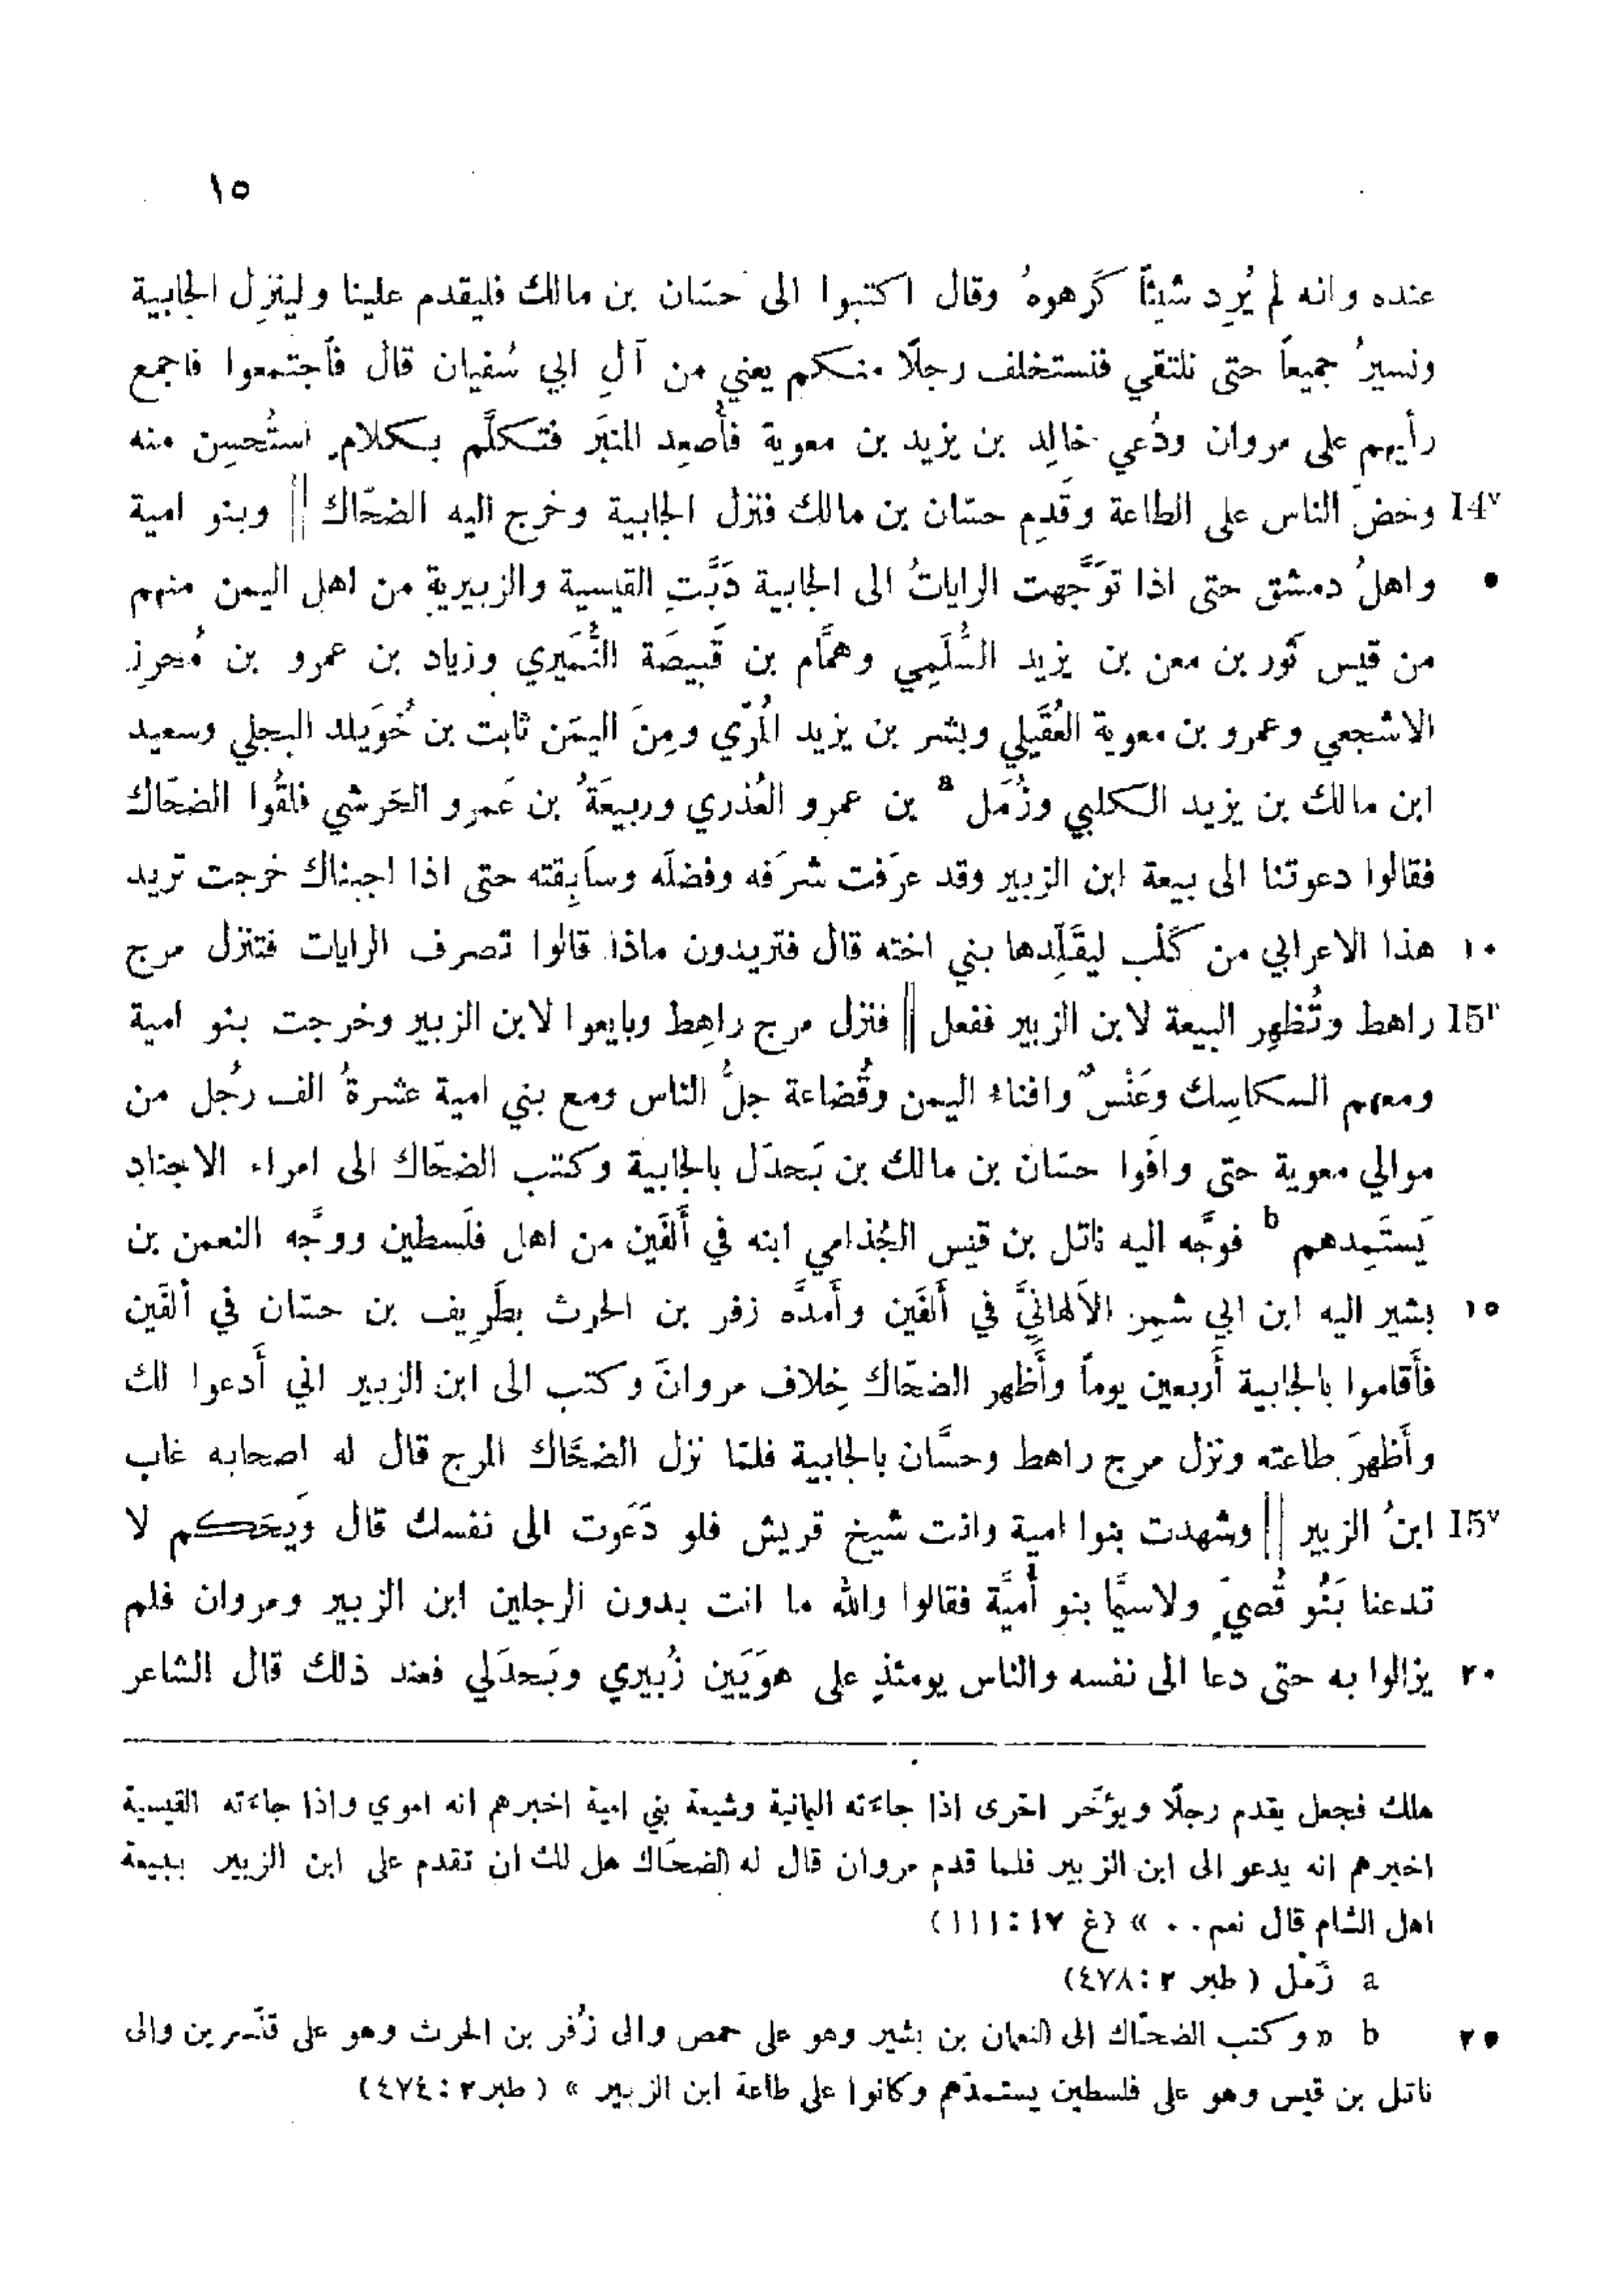 ١٥
عنده وانه لم يُرِد شيئاً كَرهوهُ وقال اكتبوا الى حسّان بن مالك فليقدم علينا ولينزِل الجابية
ونسيرُ جميعاً حتى نلتقي فنستخلف رجلًا منكم يعني من آلِ ابي سُفيان قال فأجتمعوا فاجمع
رأيهم على مروان ودُعي خالِد بن يزيد بن معوية فأُصعِد المنبَر فتكلَّم بكلامٍ استُحسِن منه
14v وحضّ الناس على الطاعة وقَدِم حسّان بن مالك فنزل الجابية وخرج اليه الضحّاك || وبنو امية
٥ واهلُ دمشق حتى اذا توَجَّهت الراياتُ الى الجابية دَبَّتِ القيسية والزبيرية من اهل اليمن منهم
من قيس ثَور بن معن بن يزيد السُّلَمِي وهمَّام بن قَبيصَة النُّمَيري وزياد بن عمرو بن مُحرِز
الاشجعي وعمرو بن معوية العُقَيلي وبشر بن يزيد المُرّي ومِنَ اليمَن ثابت بن خُوَيلد البجلي وسعيد
ابن مالك بن يزيد الكلبي وزُمَل a بن عمرو العُذري وربيعَةُ بن عَمرو الحَرشي فلقُوا الضحّاك
فقالوا دعوتنا الى بيعة ابن الزبير وقد عرَفت شرَفه وفضلَه وسابِقته حتى اذا اجبناك خرجت تريد
١٠ هذا الاعرابي من كَلْب ليقَلِّدها بني اخته قال فتريدون ماذا قالوا تصرف الرايات فتنزل مرج
15r راهط وتُظهِر البيعة لابن الزبير ففعل || فنزل مرج راهِط وبايعوا لابن الزبير وخرجت بنو امية
ومعهم السكاسِك وعَنْسٌ وافناء اليمن وقُضاعة جلُّ الناس ومع بني امية عشرةُ الف رَجُل من
موالي معوية حتى وافَوا حسّان بن مالك بن بَحدَل بالجابية وكتب الضحّاك الى امراء الاجنادِ
يَستَمِدهم b فوجَّه اليه ناتل بن قيس الجُذامي ابنه في أَلفَين من اهل فلَسطين ووجَّه النعمن بن
١٥ بشير اليه ابن ابي شمِر الأَلهانيَّ في أَلفَين وأَمدَّه زفر بن الحرث بطَرِيف بن حسّان في ألفَين
فأَقاموا بالجابية أَربعين يوماً وأَظهر الضحّاك خِلاف مروانَ وكتب الى ابن الزبير اني أَدعوا لك
وأَظهرَ طاعته ونزل مرج راهط وحسَّان بالجابية فلمّا نزل الضحَّاك المرج قال له اصحابه غاب
15v ابنُ الزبير || وشهدت بنوا امية وانت شيخ قريش فلو دَعَوت الى نفسك قال وَيحَكم لا
تدعنا بَنُو قُصيٍّ ولاسيَّما بنو أُميَّة فقالوا والله ما انت بدون الرجلين ابن الزبير ومروان فلم
٢٠ يزالوا به حتى دعا الى نفسه والناس يومئذٍ على هوَيَين زُبيري وبَحدَلي فعند ذلك قال الشاعر
ملك فجعل يقدم رجلًا ويؤخّر اخرى اذا جاءته اليمانية وشيعة بني امية اخبرهم انه اموي واذا جاءته القيسية
اخبرهم انه يدعو الى ابن الزبير فلما قدم مروان قال له الضحّاك هل لك ان تقدم على ابن الزبير ببيعة
اهل الشام قال نعم . . » (غ ١٧ : ١١١)
a زَمْل (طبر ٢ : ٤٧٨)
٢٥ b «وكتب الضحّاك الى النعمان بن بشير وهو على حمص والى زُفر بن الحرث وهو على قنّسرين والى
ناتل بن قيس وهو على فلسطين يستمدّهم وكانوا على طاعة ابن الزبير » (طبر ٢ : ٤٧٤)